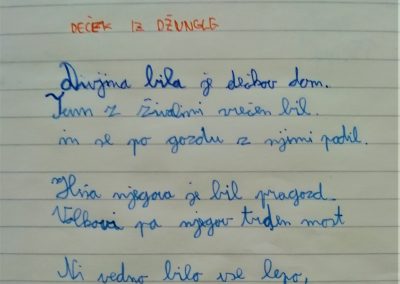 DEČEK IZ DŽUNGLE
Divjina bila je dečkov dom.
Tam z živalmi srečen bil.
in se po gozdu z njimi podil.
Hiša njegova je bil pragozd.
Volkovi pa njegov trden most
Ni vedno bilo vse lepo,